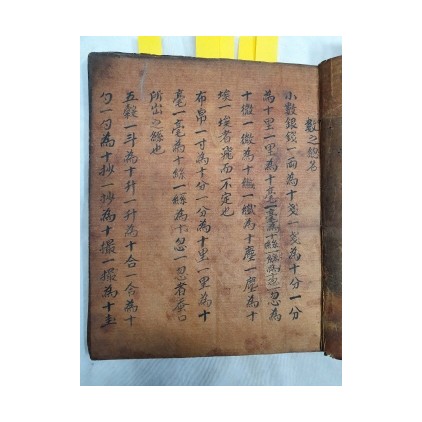 數之總名
小數銀錢一両為十戔一戔為十分一分
為十里一里為十毫一毫為十絲一絲為十忽一忽為
十微一微為十纖一纖為十塵一塵為十
埃一埃者飛而不定也
布帛一寸為十分一分為十里一里為十
毫一毫為十絲一絲為十忽一忽常蚕口
所出之絲也
五穀一斗為十升一升為十合一合為十
勺一勺為十抄一抄為十撮一撮為十圭